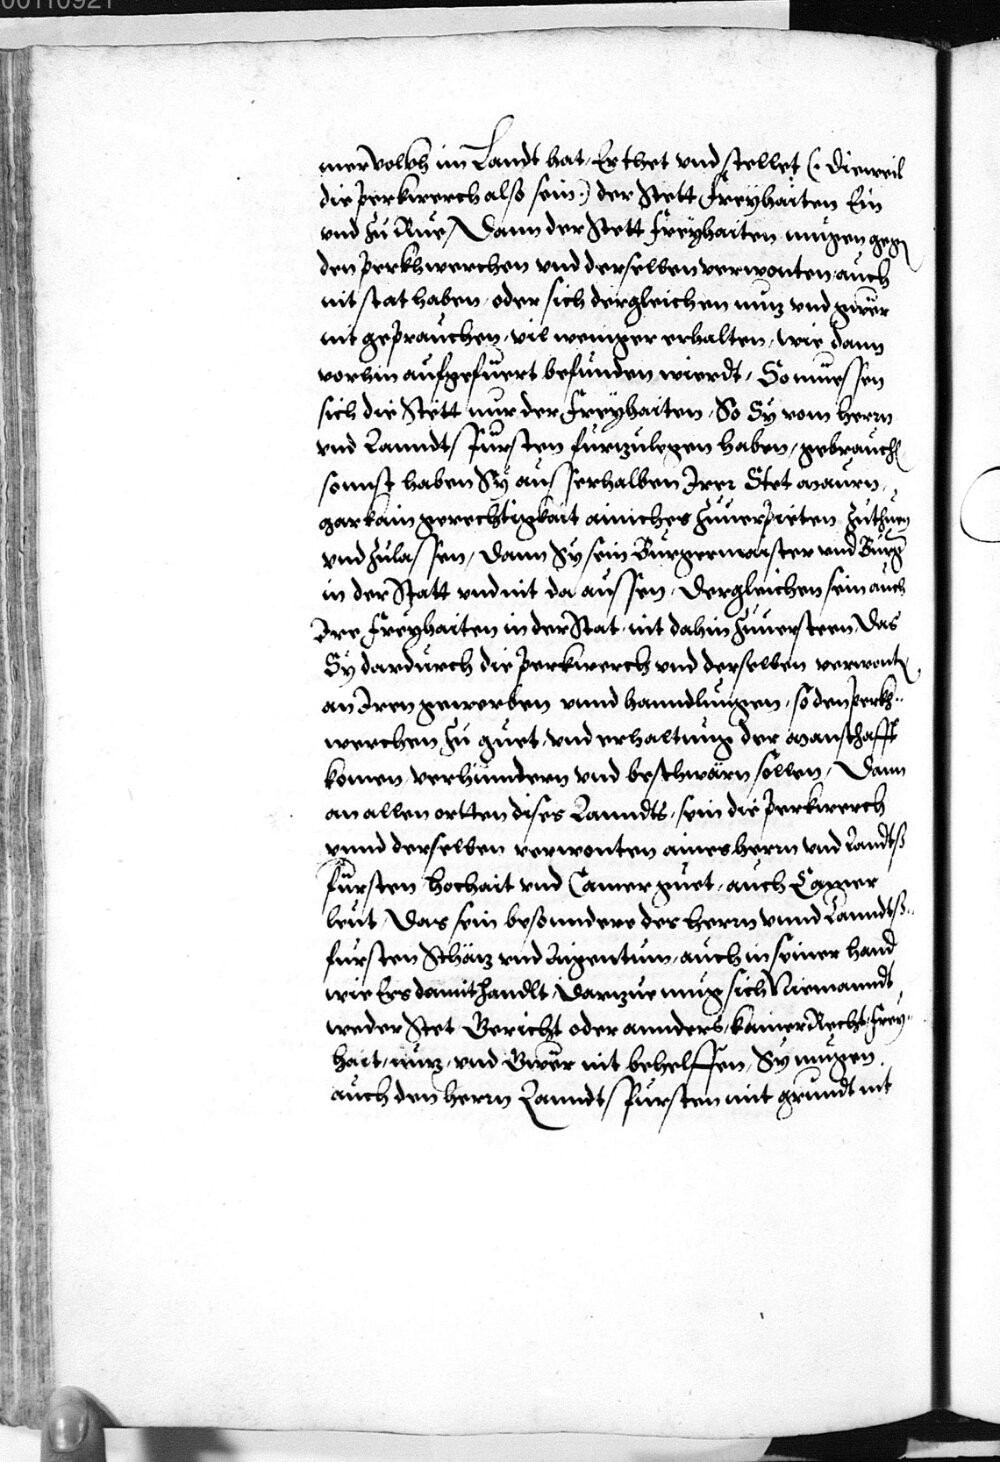 00110921
mer Volkh im Landt hat, Er thet vnd stellet (: dieweil
die perkwerch also sein :) der Stett Freyhaiten Ein
vnd zu Rue, Dann der Stett freyhaiten mugen gegen
den perkhwerchen vnd derselben verwonten, auch
nit stat haben, oder sich dergleichen nuz vnd gwer
nit geprauchen, vil weniger erhalten, wie dann
vorhin aufgefuert befunden wierdt, So muessen
sich die Stett nur der Freyhaiten, So Sy vom herrn
vnd Lanndtsfursten furzulegen haben, gebrauchen
sonnst haben Sy ausserhalben Irer Stet maurn,
gar kain gerechtigkait ainiches zuuerpieten zuthuen
vnd zulassen, Dann Sy sein Burgermaister vnd Burger
in der Statt vnd nit da aussen, dergleichen sein auch
Ire Freyhaiten in der Stat, nit dahin zuuersteen, Das
Sy dardurch die perkwerch vnd derselben verwonten
an Iren gewerben vnnd hanndlungen, so den perkh-
werchen zu guet, vnd erhaltung der manschafft
komen, verhinndern vnd beschwärn sollen, Dann
an allen ortten dises Lanndts, sein die perkwerch
vnnd derselben verwonten aines herrn vnd Landts
fursten hochait vnd Camerguet, auch Camer
leut, Das sein besonndere des herrn vnnd Lanndts-
fursten Schäz vnd Aigentum, auch in seiner hand
wie Ers damit handlt, Darzue mug sich Niemanndt
weder Stet Gericht oder annders, kainer Recht, Frey-
hait, nuz, vnd Gwer nit behelffen, Sy mugen
auch den herrn Lanndtsfursten mit grundt nit